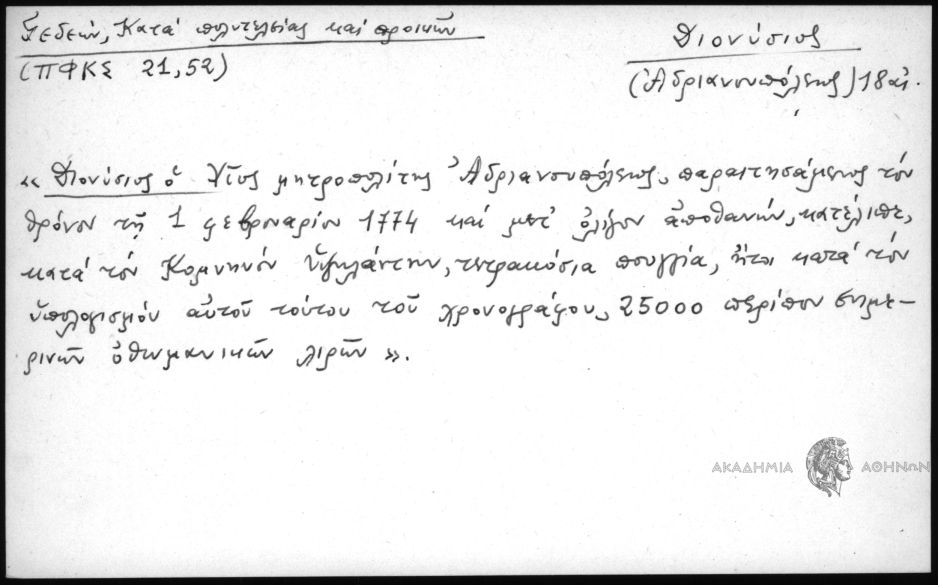 Γεδεών, Κατά πολυτελείας καί προικῶν
(ΠΦΚΣ 21, 52)
Διονύσιος
(Ἀδριανουπόλεως) 18 αἰ.
« Διονύσιος ὁ Νῖος μητροπολίτης Ἀδριανουπόλεως, παραιτησάμενος τόν
θρόνον τῇ 1 φεβρουαρίου 1774 καί μετ' ὀλίγον ἀποθανών, κατέλιπε,
κατά τόν Κομνηνόν Ὑψηλάντην, τετρακόσια πουγγία, ἤτοι κατά τόν
ὑπολογισμόν αὐτοῦ τούτου τοῦ χρονογράφου, 25000 περίπου σημε-
ρινῶν ὀθωμανικῶν λιρῶν ».
ΑΚΑΔΗΜΙΑ ΑΘΗΝΩΝ